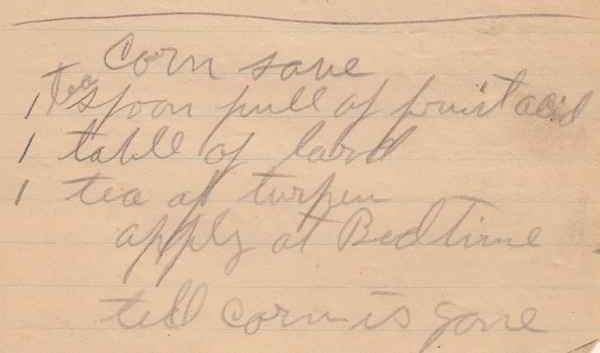 Corn save
1 Tea spoon full of fruit acid
1 table of lard
1 tea of turpen
apply at Bedtime
till corn is gone